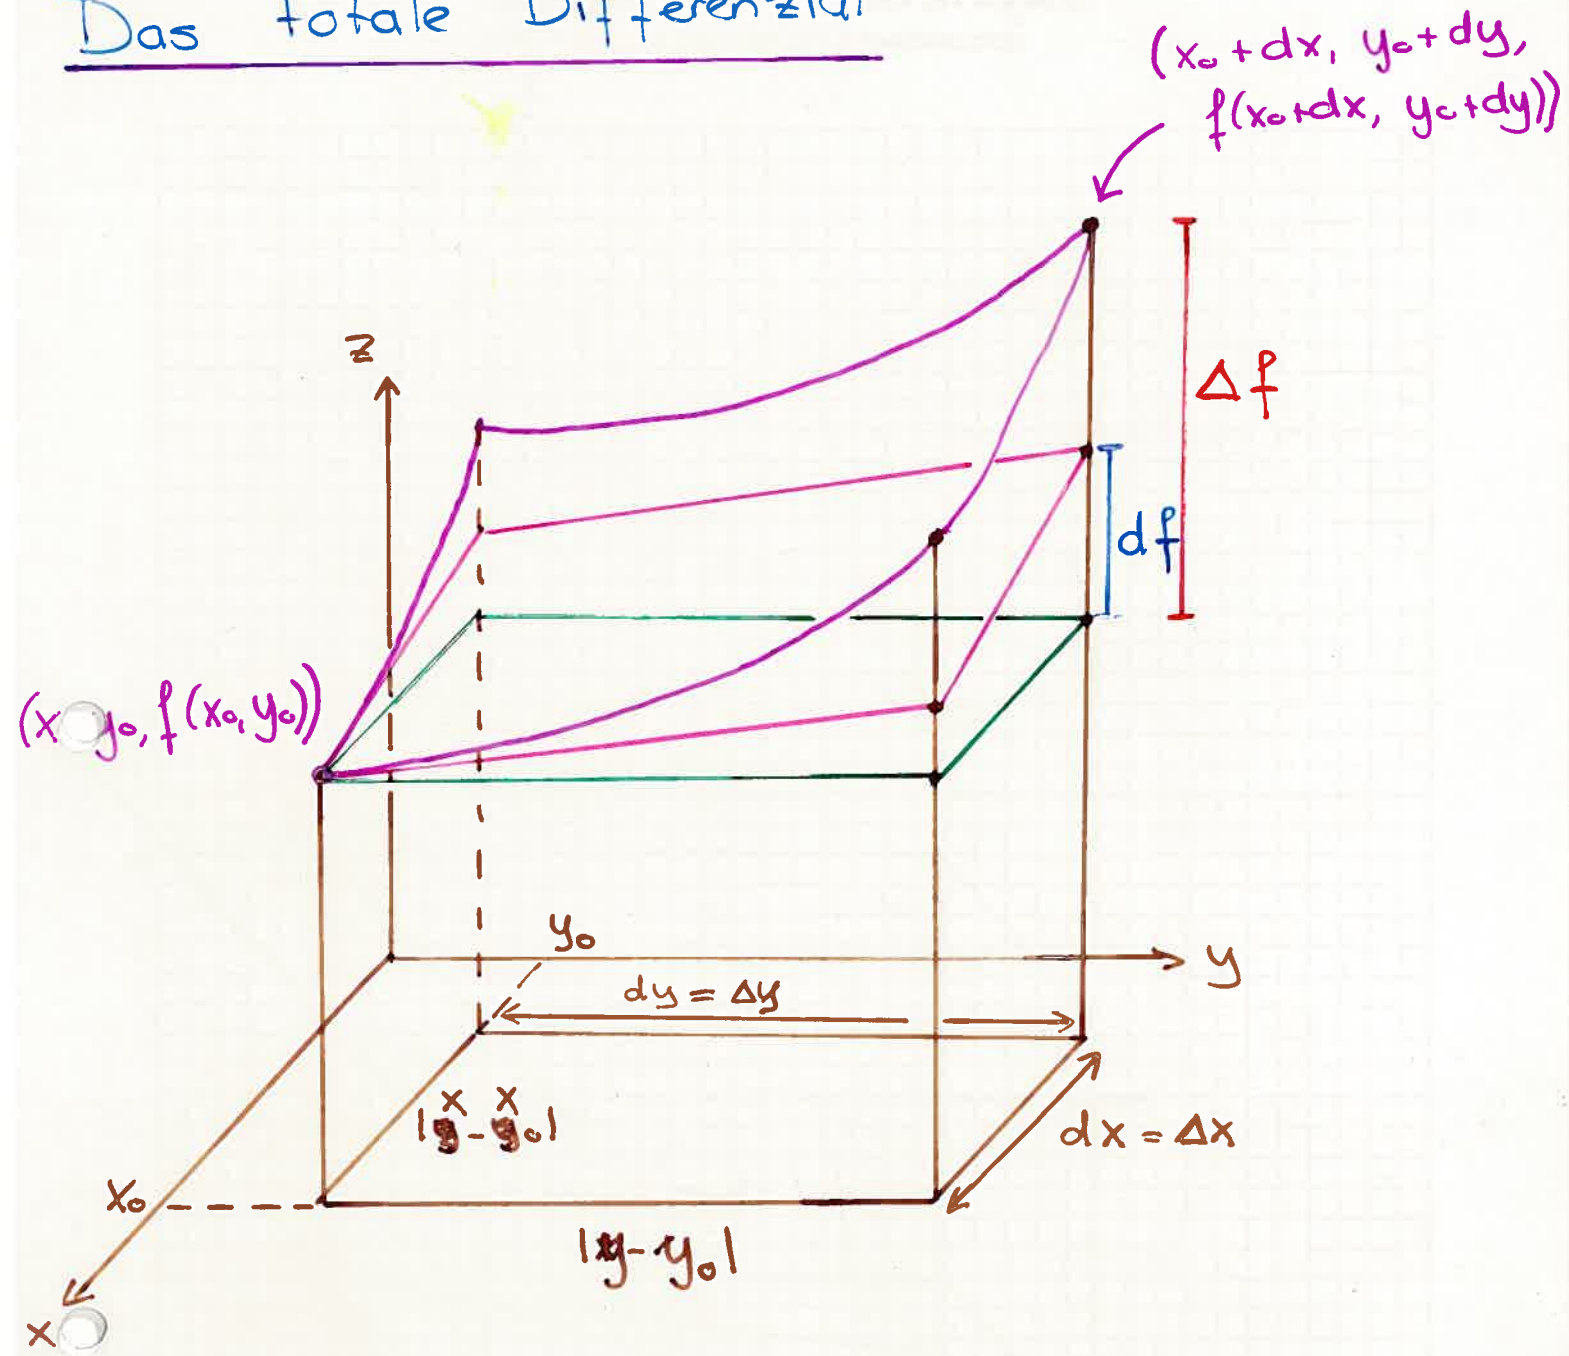 Das totale Differenzial
(x₀+dx, y₀+dy,
f(x₀+dx, y₀+dy))
z
Δf
df
(x y₀, f(x₀, y₀))
y₀
y
dy = Δy
|x - x₀|
dx = Δx
x₀
|y - y₀|
x